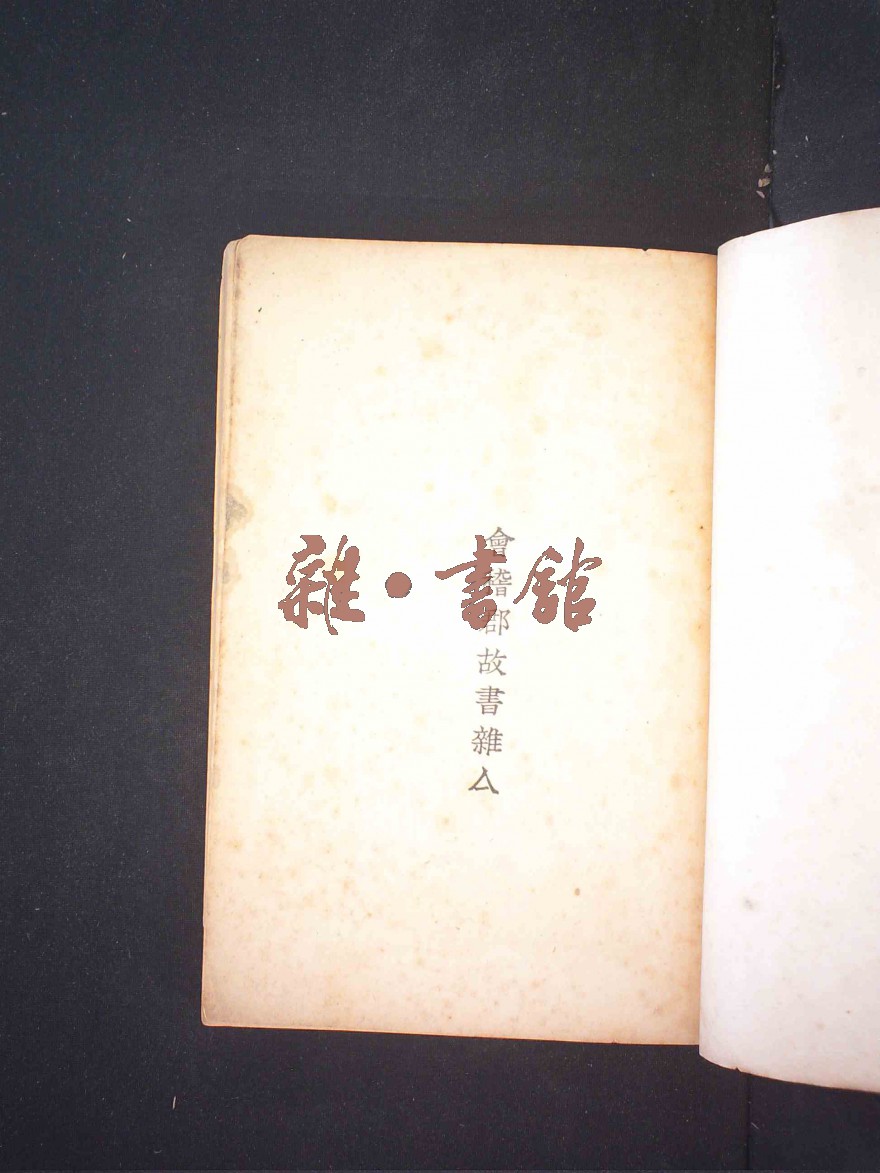 會稽郡故書雜亼
雜·書館